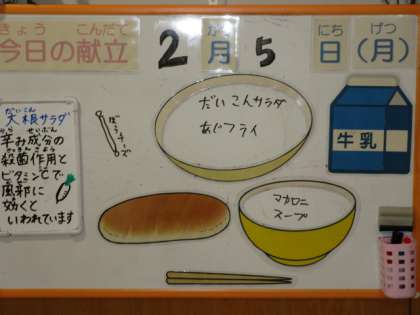 きょう こんだて
今日の献立
2月5日(月)
がつ にち げつ
だいこん
大根サラダ
から せいぶん
辛み成分の
さっきんさよう
殺菌作用と
ビタミンCで
風邪に
効くと
いわれています
ぼうチーズ
だいこんサラダ
あじフライ
牛乳
マカロニ
スープ